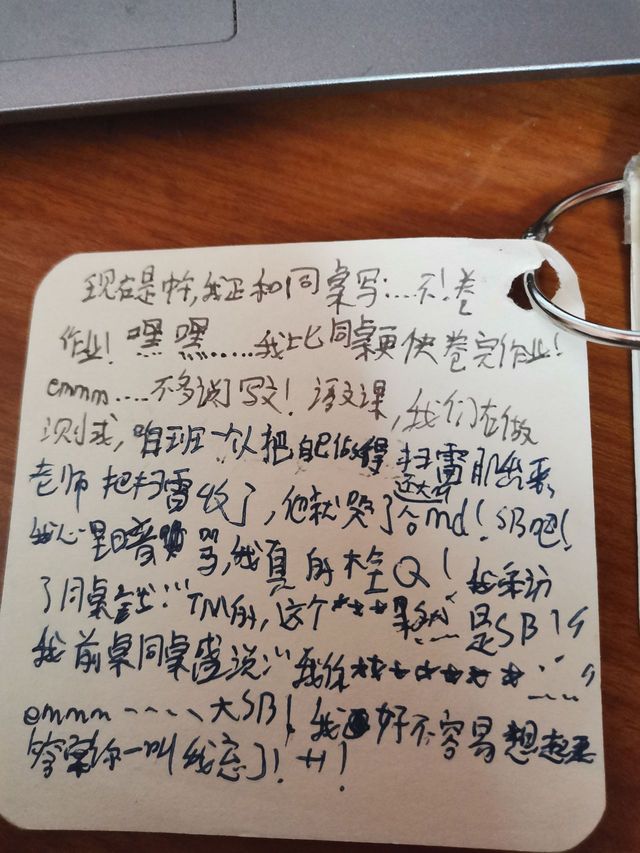 现在是中午,我正和同桌写....不!卷
作业!嘿嘿......我比同桌更快卷完作业!
emmm....不多说了写文!语文课,我们在做
测试,咱班一个人把自己做得扫雷那出来
老师把扫雷收了,他就哭了 还大喊 md!SB吧!
我心里暗骂,我真的栓Q!我采访
了同桌:"TM的,这个***果然....是SB!"
我前桌同桌说:"我你*******....."
emmm.....大SB!我好不容易想起来
答案你一叫我忘了!艹!